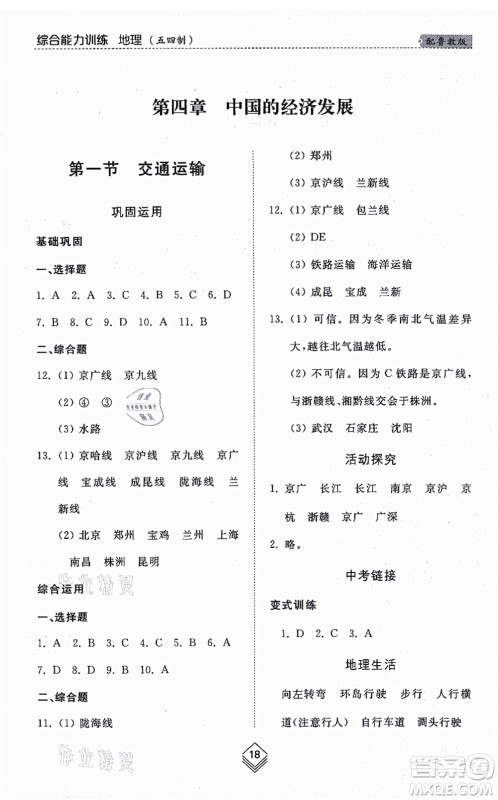 综合能力训练 地理(五四制)
配鲁教版
第四章 中国的经济发展
第一节 交通运输
巩固运用
基础巩固
一、选择题
1. A 2. A 3. B 4. C 5. A 6. D
7. B 8. B 9. C 10. D 11. A
二、综合题
12. (1) 京广线 京九线
(2) ④ ③
(3) 水路
13. (1) 京哈线 京沪线 京九线 京广
线 宝成线 成昆线 陇海线 兰
新线
(2) 北京 郑州 宝鸡 兰州 上海
南昌 株洲 昆明
综合运用
一、选择题
1. A 2. C 3. C 4. D 5. B 6. A
7. D 8. D 9. D 10. A
二、综合题
11. (1) 陇海线
(2) 郑州
(3) 京沪线 兰新线
12. (1) 京广线 包兰线
(2) DE
(3) 铁路运输 海洋运输
(4) 成昆 宝成 兰新
13. (1) 可信。因为冬季南北气温差异
大,越往北气温越低。
(2) 不可信。因为 C 铁路是京广线,
与浙赣线、湘黔线交会于株洲。
(3) 武汉 石家庄 沈阳
活动探究
1. 京广 长江 长江 南京 京沪 京
杭 浙赣 京九
2. 略。
中考链接
变式训练
1. D 2. C 3. A
地理生活
向左转弯 环岛行驶 步行 人行横
道(注意行人) 自行车道 调头行驶
18
作业精灵
作业精灵
答案圈
MXQE.COM